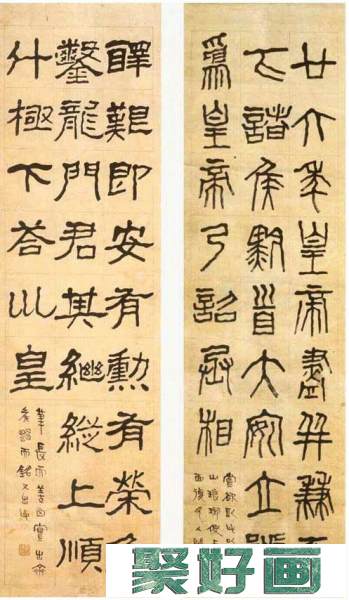 廿六年皇帝盡并兼天
下諸侯黔首大安立號
爲皇帝乃詔丞相
醳艱即安有勳有榮禹
鑿龍門君其繼縱上順
斗極下答巛皇
聚好画